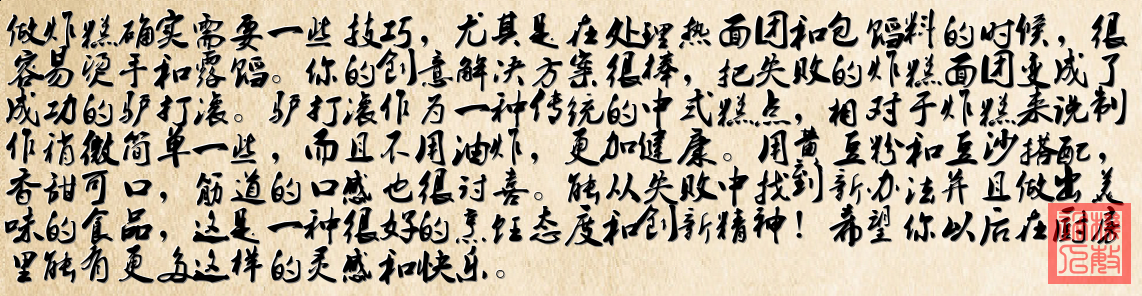 做炸糕确实需要一些技巧，尤其是在处理热面团和包馅料的时候，很
容易烫手和露馅。你的创意解决方案很棒，把失败的炸糕面团变成了
成功的驴打滚。驴打滚作为一种传统的中式糕点，相对于炸糕来说制
作稍微简单一些，而且不用油炸，更加健康。用黄豆粉和豆沙搭配，
香甜可口，筋道的口感也很讨喜。能从失败中找到新办法并且做出美
味的食品，这是一种很好的烹饪态度和创新精神！希望你以后在厨房
里能有更多这样的灵感和快乐。